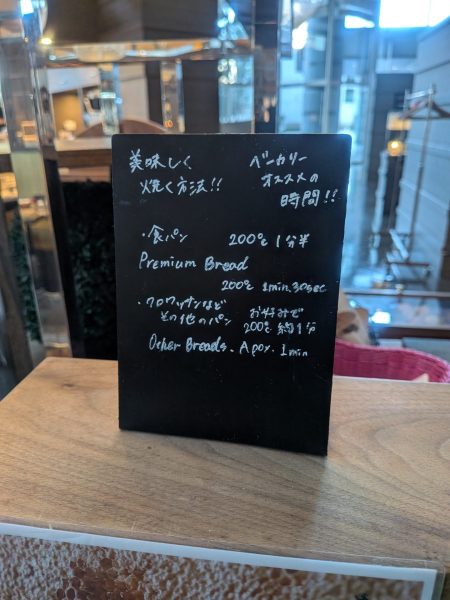 美味しく
焼く方法!!
ベーカリー
オススメの
時間!!
・食パン 200℃ 1分半
Premium Bread
200℃ 1min,30sec
・クロワッサンなど お好みで
その他のパン 200℃ 約1分
Other Breads. Apox. 1min